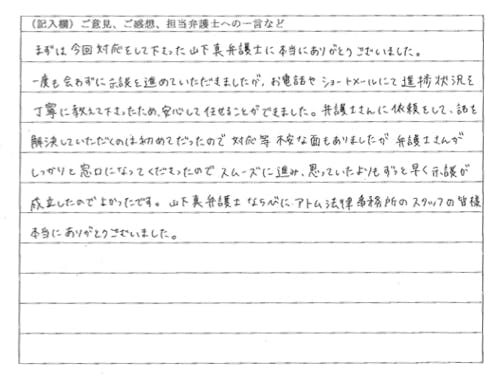 （記入欄）ご意見、ご感想、担当弁護士への一言など
まずは今回対応をして下さった山下真弁護士に本当にありがとうございました。
一度も会わずに示談を進めていただきましたが、お電話やショートメールにて進捗状況を
丁寧に教えて下さったため、安心して任せることができました。弁護士さんに依頼をして、話を
解決していただくのは初めてだったので対応等不安な面もありましたが弁護士さんが
しっかりと窓口になってくださったのでスムーズに進み、思っていたよりもずっと早く示談が
成立したのでよかったです。山下真弁護士ならびに、アトム法律事務所のスタッフの皆様
本当にありがとうございました。